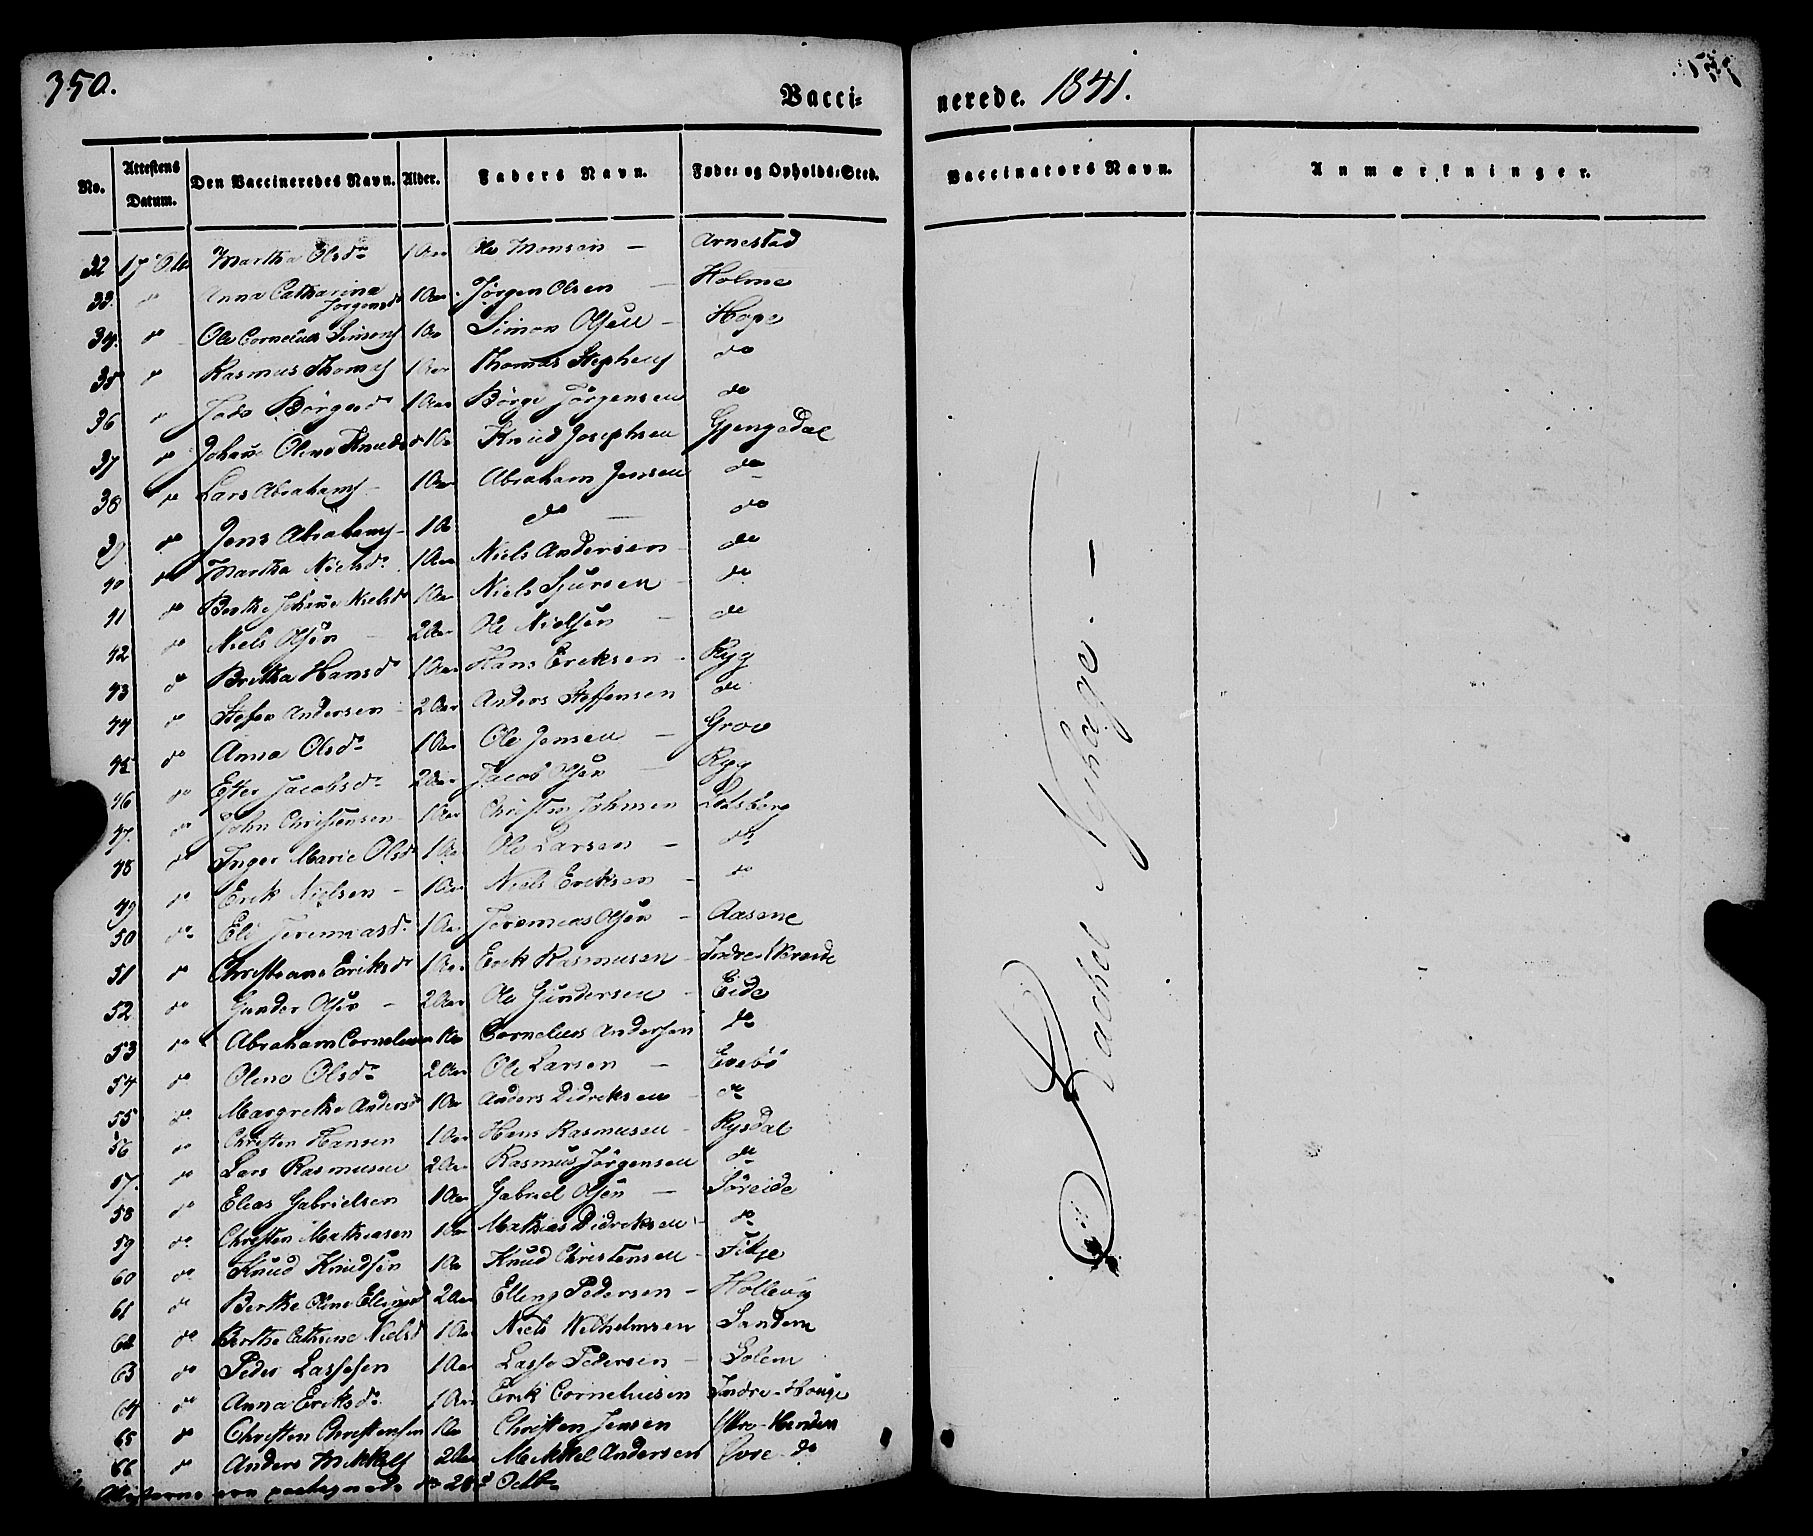 350.
Vacci= nerede. 1841.
No. Attestens Datum. Den Vaccineredes Navn. Alder. Faders Navn. Føde= og Opholds=Sted. Vaccinators Navn. Anmærkninger.
32 17 Octb Martha Olsdr 1 Aar Ole Monsen — Arnestad
33. do Anna Catharina Jørgensdr 1 Aar Jørgen Olsen — Holme
34. do Ole Cornelius Simons 1 Aar Simon Olsen — Hope
35 do Rasmus Thomas 1 Aar Thomas Stephens do
36 do Børgesdr 1 Aar Børge Jørgensen do
37 do Johane Oline Knudsdr 1 Aar Knud Josephsen Gjengedal
38 do Lars Abrahams 1 Aar Abraham Jensen do
39 do Jens Abrahams 1 A do — do
40 do Martha Nielsdr 1 Aar Niels Andersen do
41 do Berthe Johane Nielsdr 1 Aar Niels Sjursen do
42 do Niels Olsen — 2 Aar Ole Nielsen — do
43 do Britha Hansdr 1 Aar Hans Eriksen Ryg
44 do Stefen Andersen 2 Aar Anders Steffensen do
45 do Anna Olsdr 1 Aar Ole Jensen — Grov
46 do Ester Jacobsdr 2 Aar Jacob Olsen — Ryg
47. do John Christensen 1 Aar Christen Johnsen
48 do Inger Marie Olsdr 1 Aar Ole Larsen — do
49 do Erik Nielsen — 1 Aar Niels Eriksen — do
50 do Eli Jeremiasdr 1 Aar Jeremias Olsen — Aasene
51 do Christiane Eriksdr 1 Aar Erik Rasmusen — Indre Skreide
52 do Gunder Olsen — 2 Aar Ole Gundersen — Eide
53 do Abraham Cornelius 1 Aar Cornelius Andersen do
54 do Oline Olsdr 2 Aar Ole Larsen — Evebø
55 do Margrethe Andersdr 1 Aar Anders Didriksen do
56 do Christen Hansen 1 Aar Hans Rasmusen — Rysdal
57. do Lars Rasmusen 2 Aar Rasmus Jørgensen do
58 do Elias Gabrielsen 1 Aar Gabriel Olsen — Søreide
59 do Christen Mathiasen 1 Aar Mathias Didriksen do
60 do Knud Knudsen 1 Aar Knud Christensen — Fitje
61 do Berthe Oline Ellingsdr 2 Aar Elling Pedersen — Hollevig
62 do Berthe Cathrine Nielsd 1 Aar Niels Wilhelmsen Sandene
63 do Peder Lassesen 1 Aar Lasse Pedersen — Solem
64 do Anna Eriksdr 1 Aar Erik Corneliusen Indre-Houge
65 do Christen Christensen 1 Aar Christen Jensen
66 do Anders Mikkels 2 Aar Mikkel Andersen Øvre do
Attesterne ere paategnede do 28d Octbr
Rachel Nyhage. —